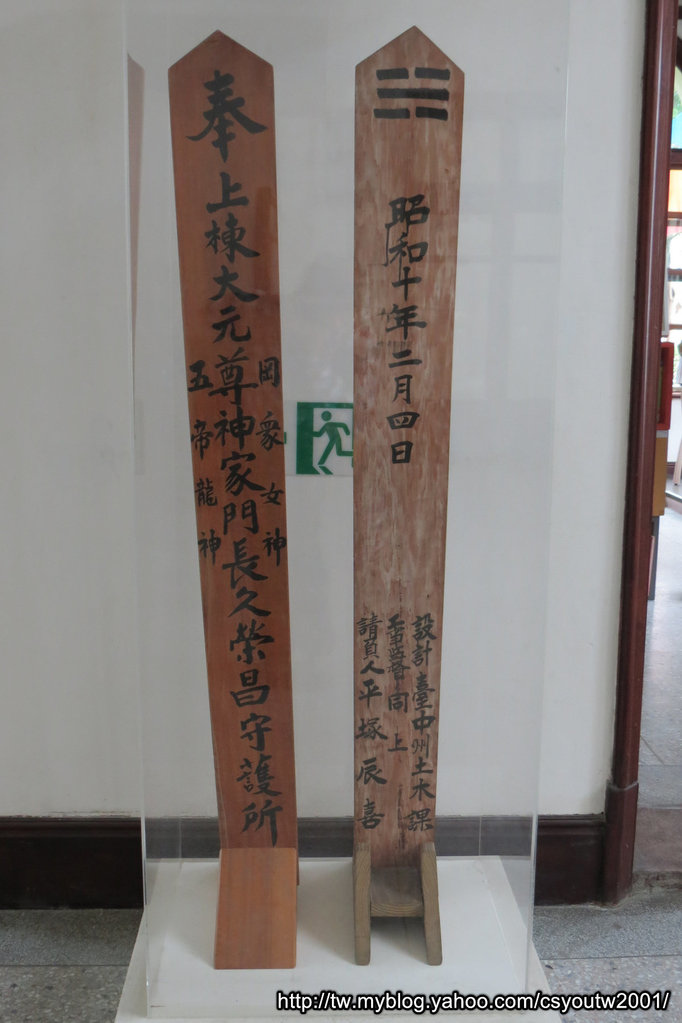 奉上棟大元尊神家門長久榮昌守護所
岡象女神
五帝龍神
昭和十年二月四日
設計臺中州土木課
監督同上
請負人平塚辰喜
http://tw.myblog.yahoo.com/csyoutw2001/